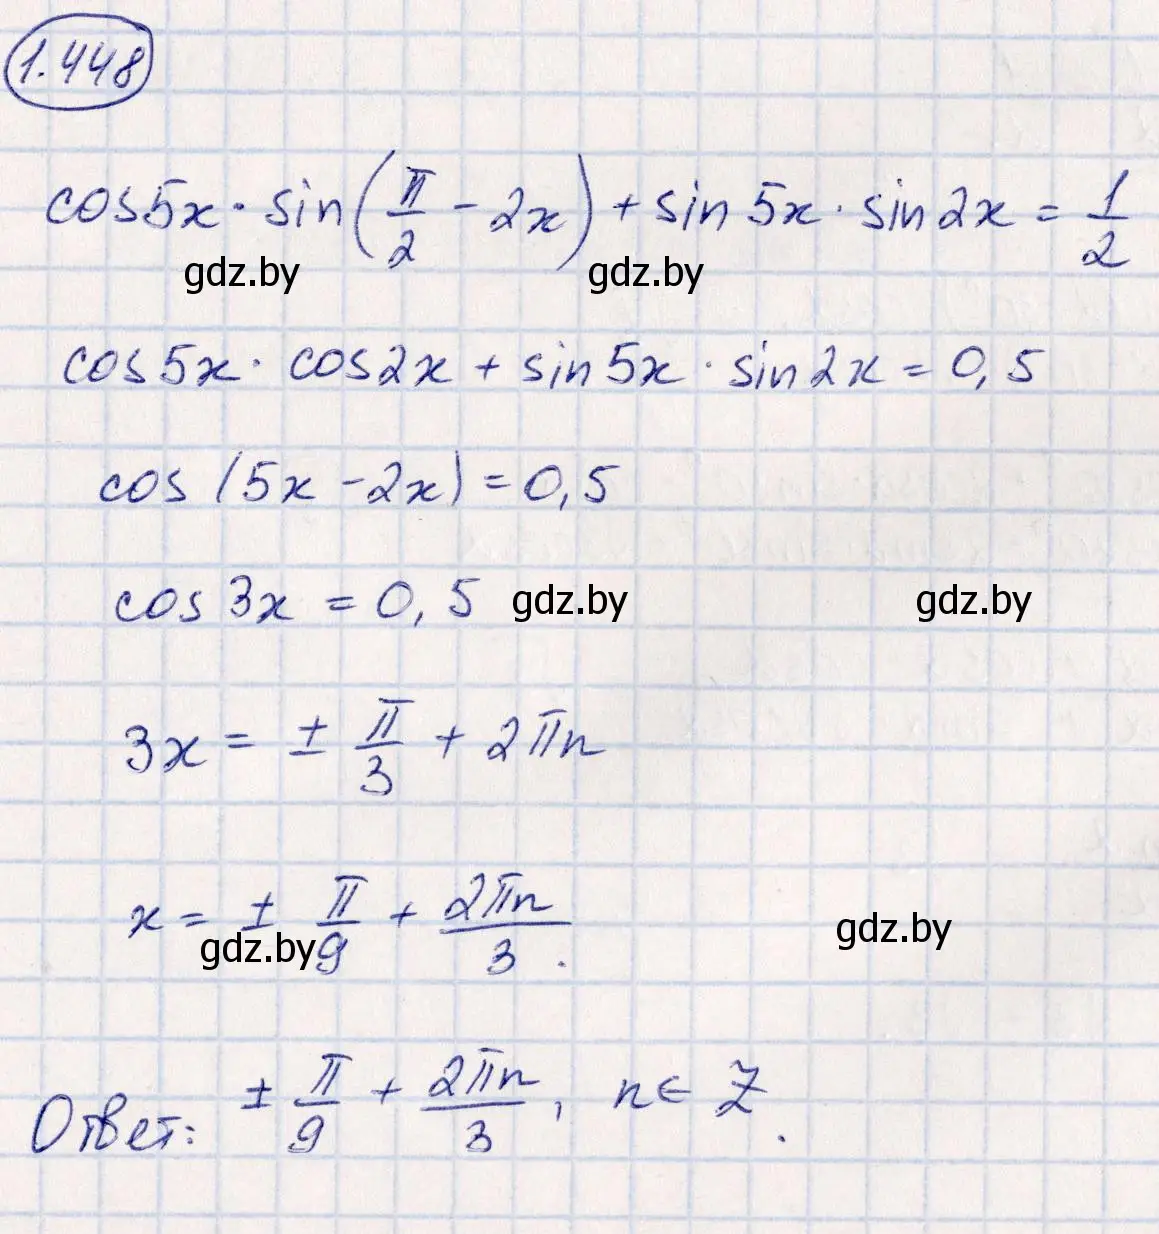 1.448
cos5x · sin(π/2 - 2x) + sin5x · sin2x = 1/2
gdz.by gdz.by
cos5x · cos2x + sin5x · sin2x = 0,5
cos(5x - 2x) = 0,5
cos3x = 0,5 gdz.by gdz.by
3x = ± π/3 + 2πn
x = ± π/9 + 2πn/3.
gdz.by gdz.by
Ответ: ± π/9 + 2πn/3, n ∈ Z.